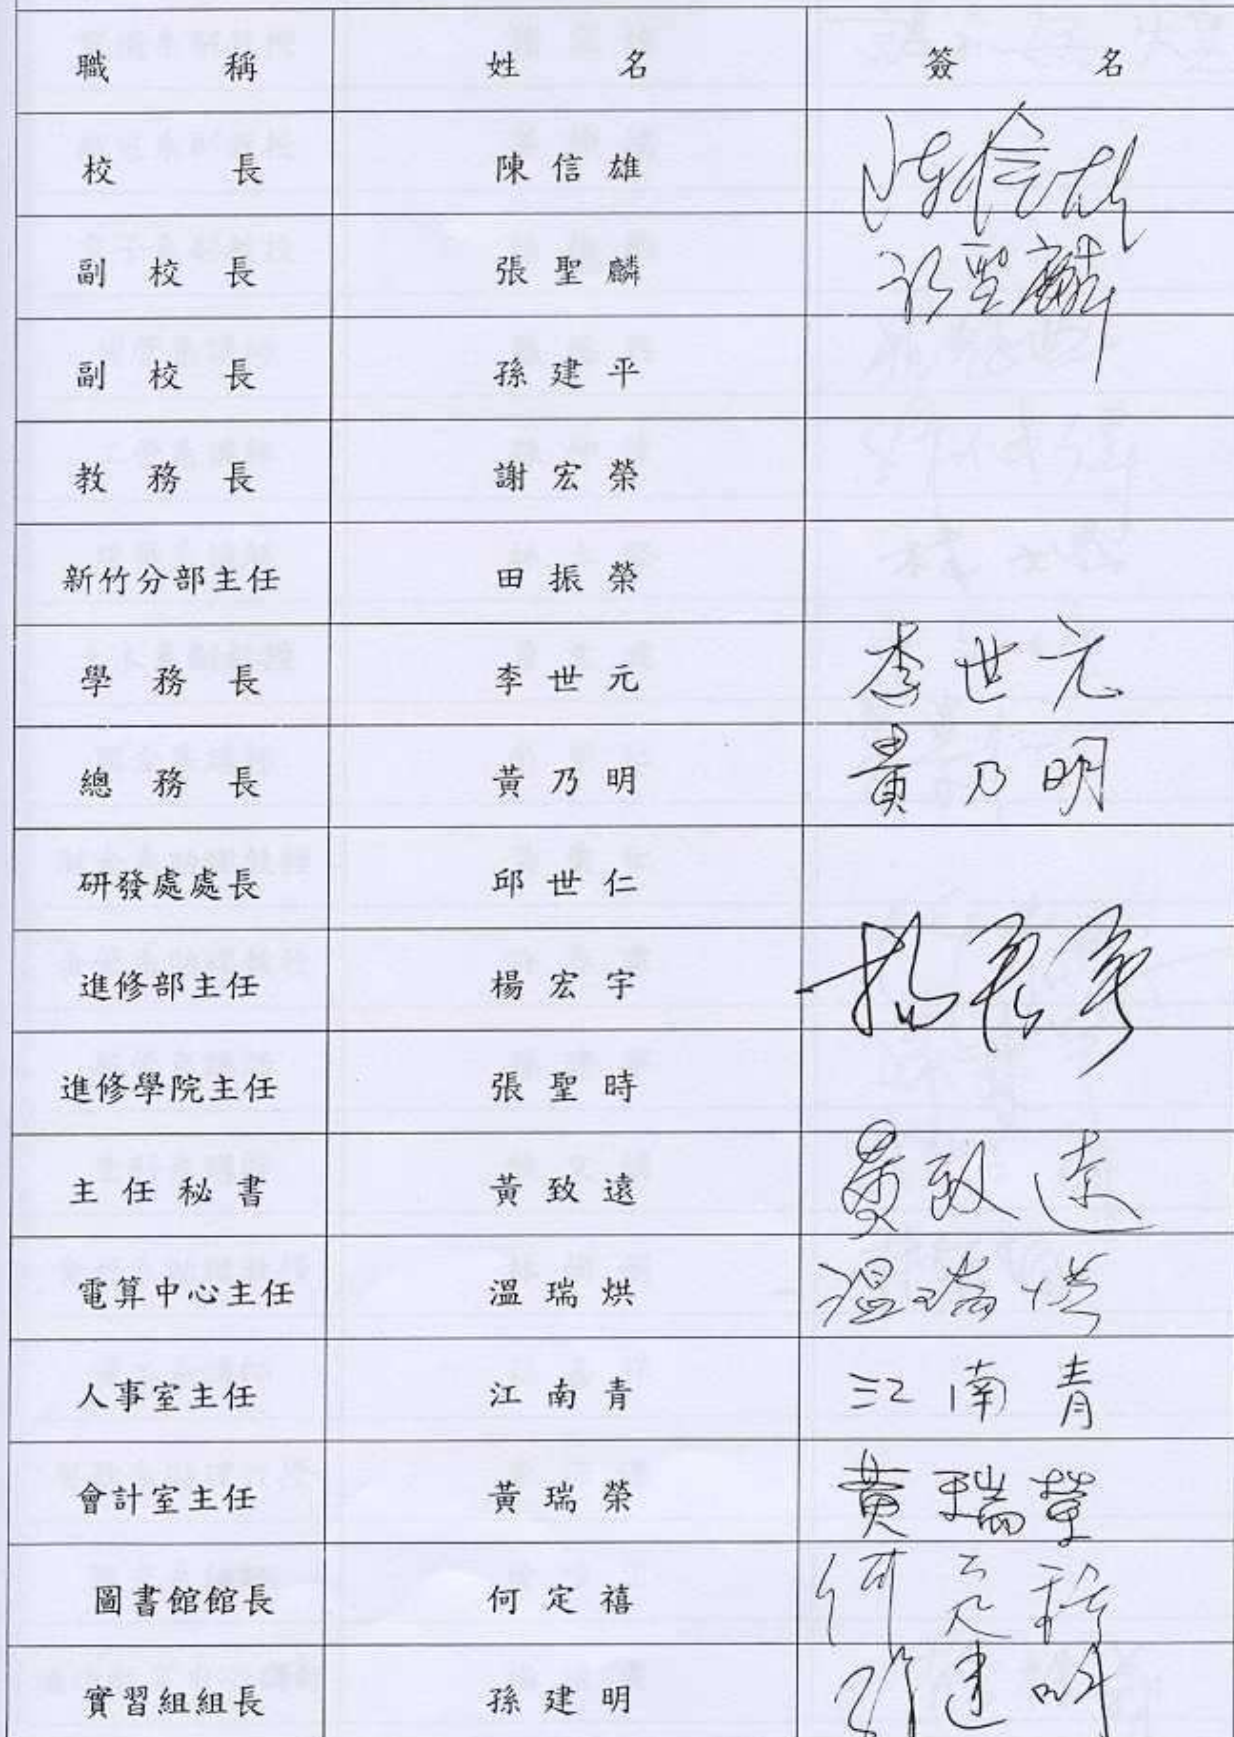 職稱 姓名 簽名
校長 陳信雄 陳信雄
副校長 張聖麟 張聖麟
副校長 孫建平
教務長 謝宏榮
新竹分部主任 田振榮
學務長 李世元 李世元
總務長 黃乃明 黃乃明
研發處處長 邱世仁
進修部主任 楊宏宇 楊宏宇
進修學院主任 張聖時
主任秘書 黃致遠 黃致遠
電算中心主任 溫瑞烘 溫瑞烘
人事室主任 江南青 江南青
會計室主任 黃瑞榮 黃瑞榮
圖書館館長 何定禧 何定禧
實習組組長 孫建明 孫建明